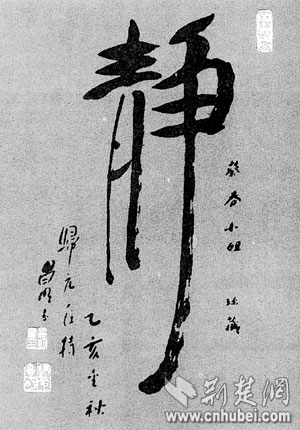 静
春小姐 珍藏
乙亥金秋
歸元住持
昌明
荆楚网
www.cnhubei.com